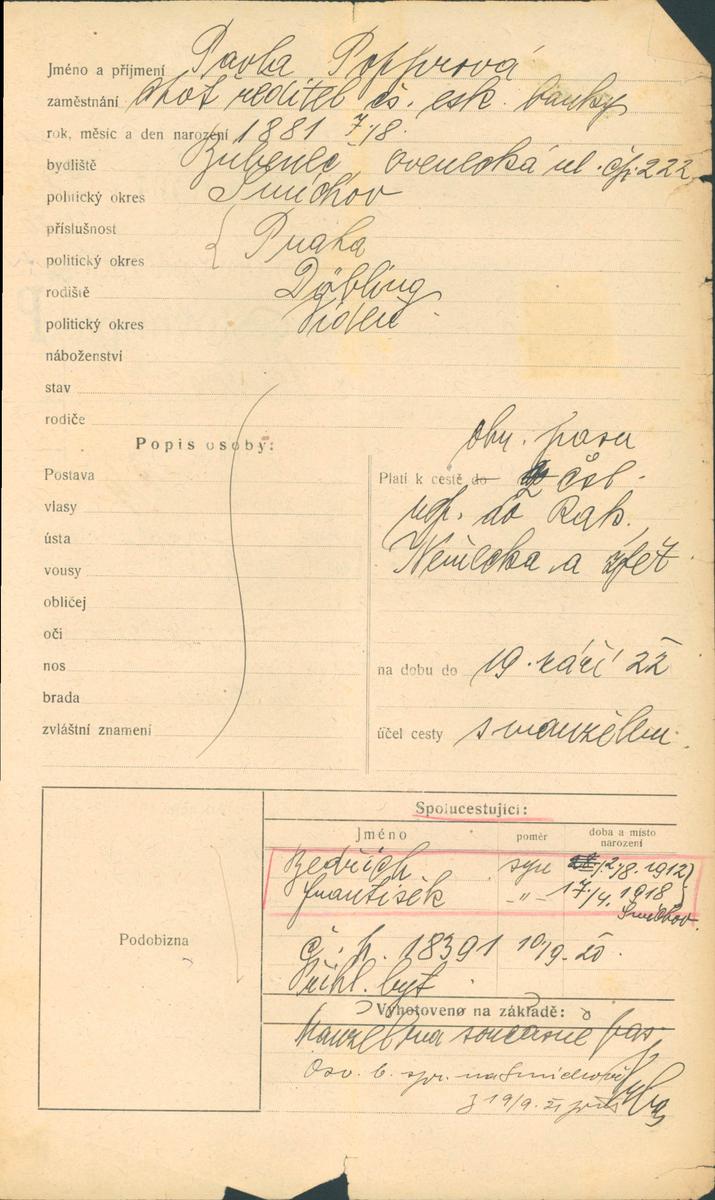 Jméno a příjmení Pavla Popprová
zaměstnání choť ředitel čs. esk. banky
rok, měsíc a den narození 1881 7/8.
bydliště Bubeneč, Ovenecká ul. čp. 222
politický okres Smíchov
příslušnost Praha
politický okres
rodiště Döbling
politický okres Vídeň
náboženství
stav
rodiče
Popis osoby:
Postava
vlasy
ústa
vousy
obličej
oči
nos
brada
zvláštní znamení
obn. pasu
Platí k cestě do čsl.
do Rak.
Německa a zpět
na dobu do 19. září 22
účel cesty s manželem.
Podobizna
Spolucestující:
Jméno poměr doba a místo narození
Bedřich syn 12/8. 1912
František -"- 17/4. 1918
Smíchov.
č. p. 18391 10/9. 20.
Přihl. byt
Vyhotoveno na základě:
Manžel má současně pas
Osv. b. spr. na Smíchově
z 19/9. 21